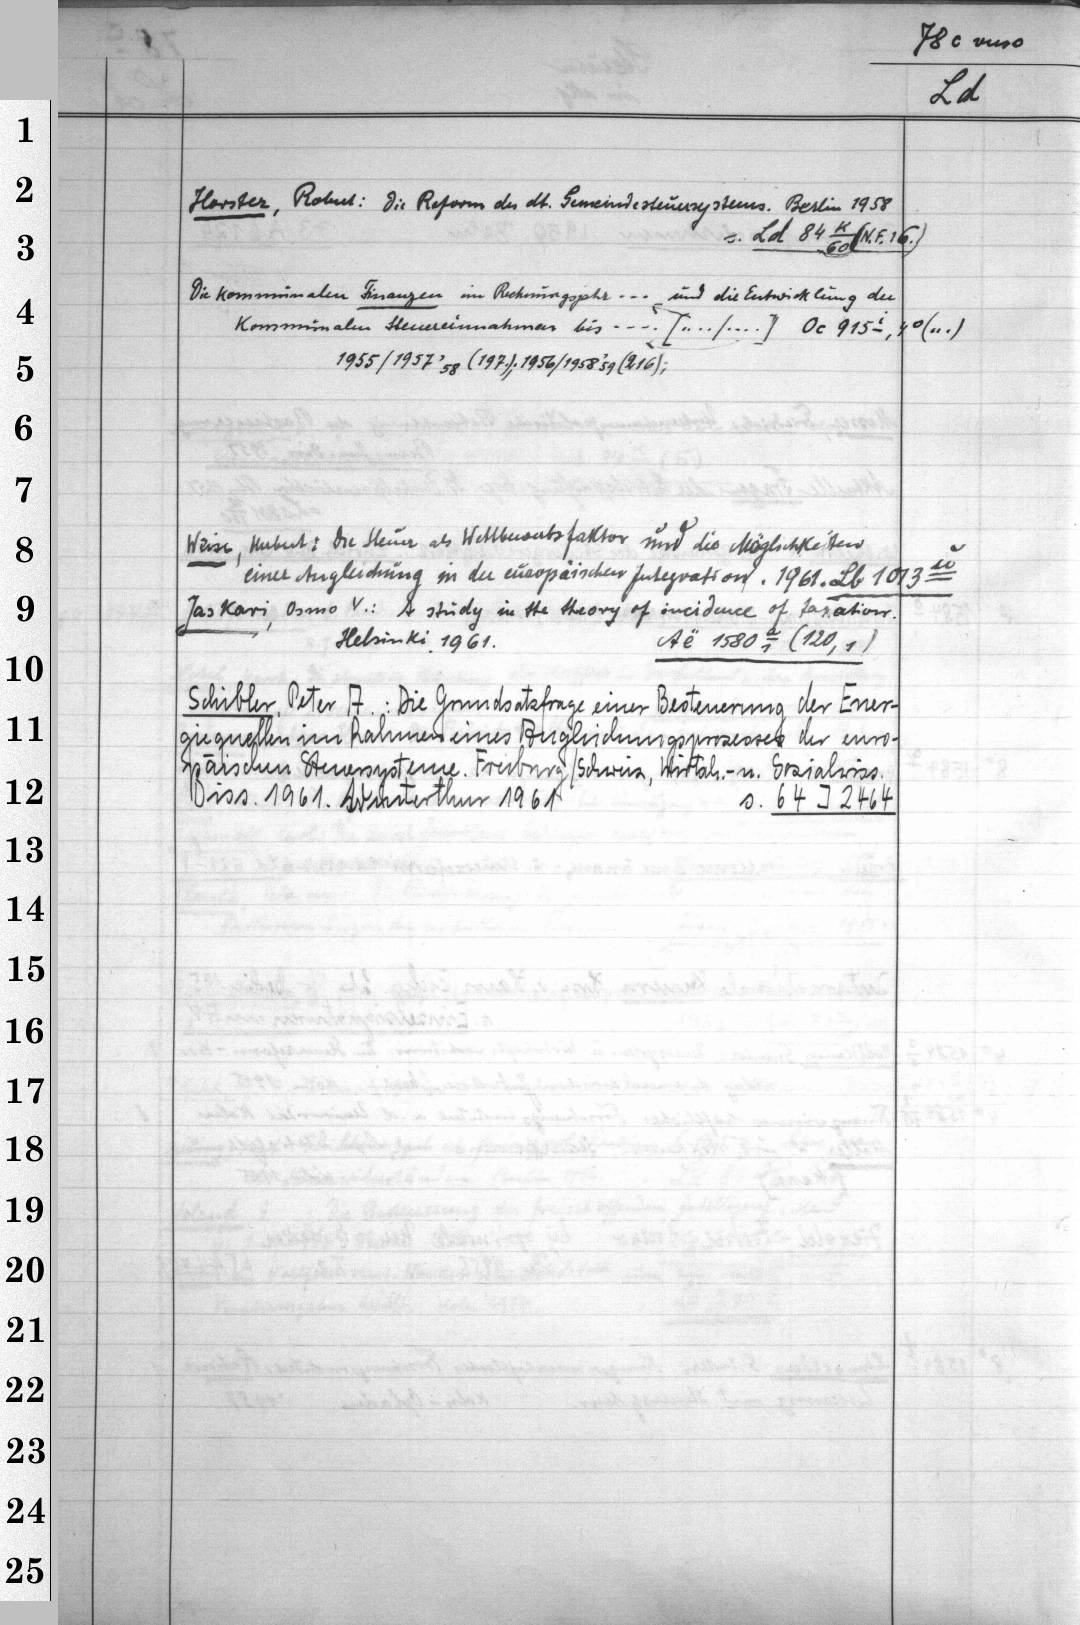 78 c verso
Ld
1
2
Horster, Robert: Die Reform des dt. Gemeindesteuersystems. Berlin 1958
3
s. Ld 84 K/60 (N.F. 16.)
Die kommunalen Finanzen im Rechnungsjahr ... und die Entwicklung der
4
Kommunalen Steuereinnahmen bis .... [..../....] Oc 915 i, 4° (..)
5
1955/1957 '58 (197.); 1956/1958 '59 (216);
6
7
8
Weise, Hubert: Die Steuer als Wettbewerbsfaktor und die Möglichkeiten
einer Angleichung in der europäischen Integration. 1961. Lb 1073
9
Jaskari, Osmo V.: A study in the theory of incidence of taxation.
Helsinki 1961. Aë 1580 a/1 (120, 1)
10
Schibler, Peter A.: Die Grundsatzfrage einer Besteuerung der Ener-
11
giequellen im Rahmen eines Angleichungsprozesses der euro-
päischen Steuersysteme. Freiburg/Schweiz, Wirtsch.- u. Sozialwiss.
12
Diss. 1961. Winterthur 1961 s. 64 J 2464
13
14
15
16
17
18
19
20
21
22
23
24
25